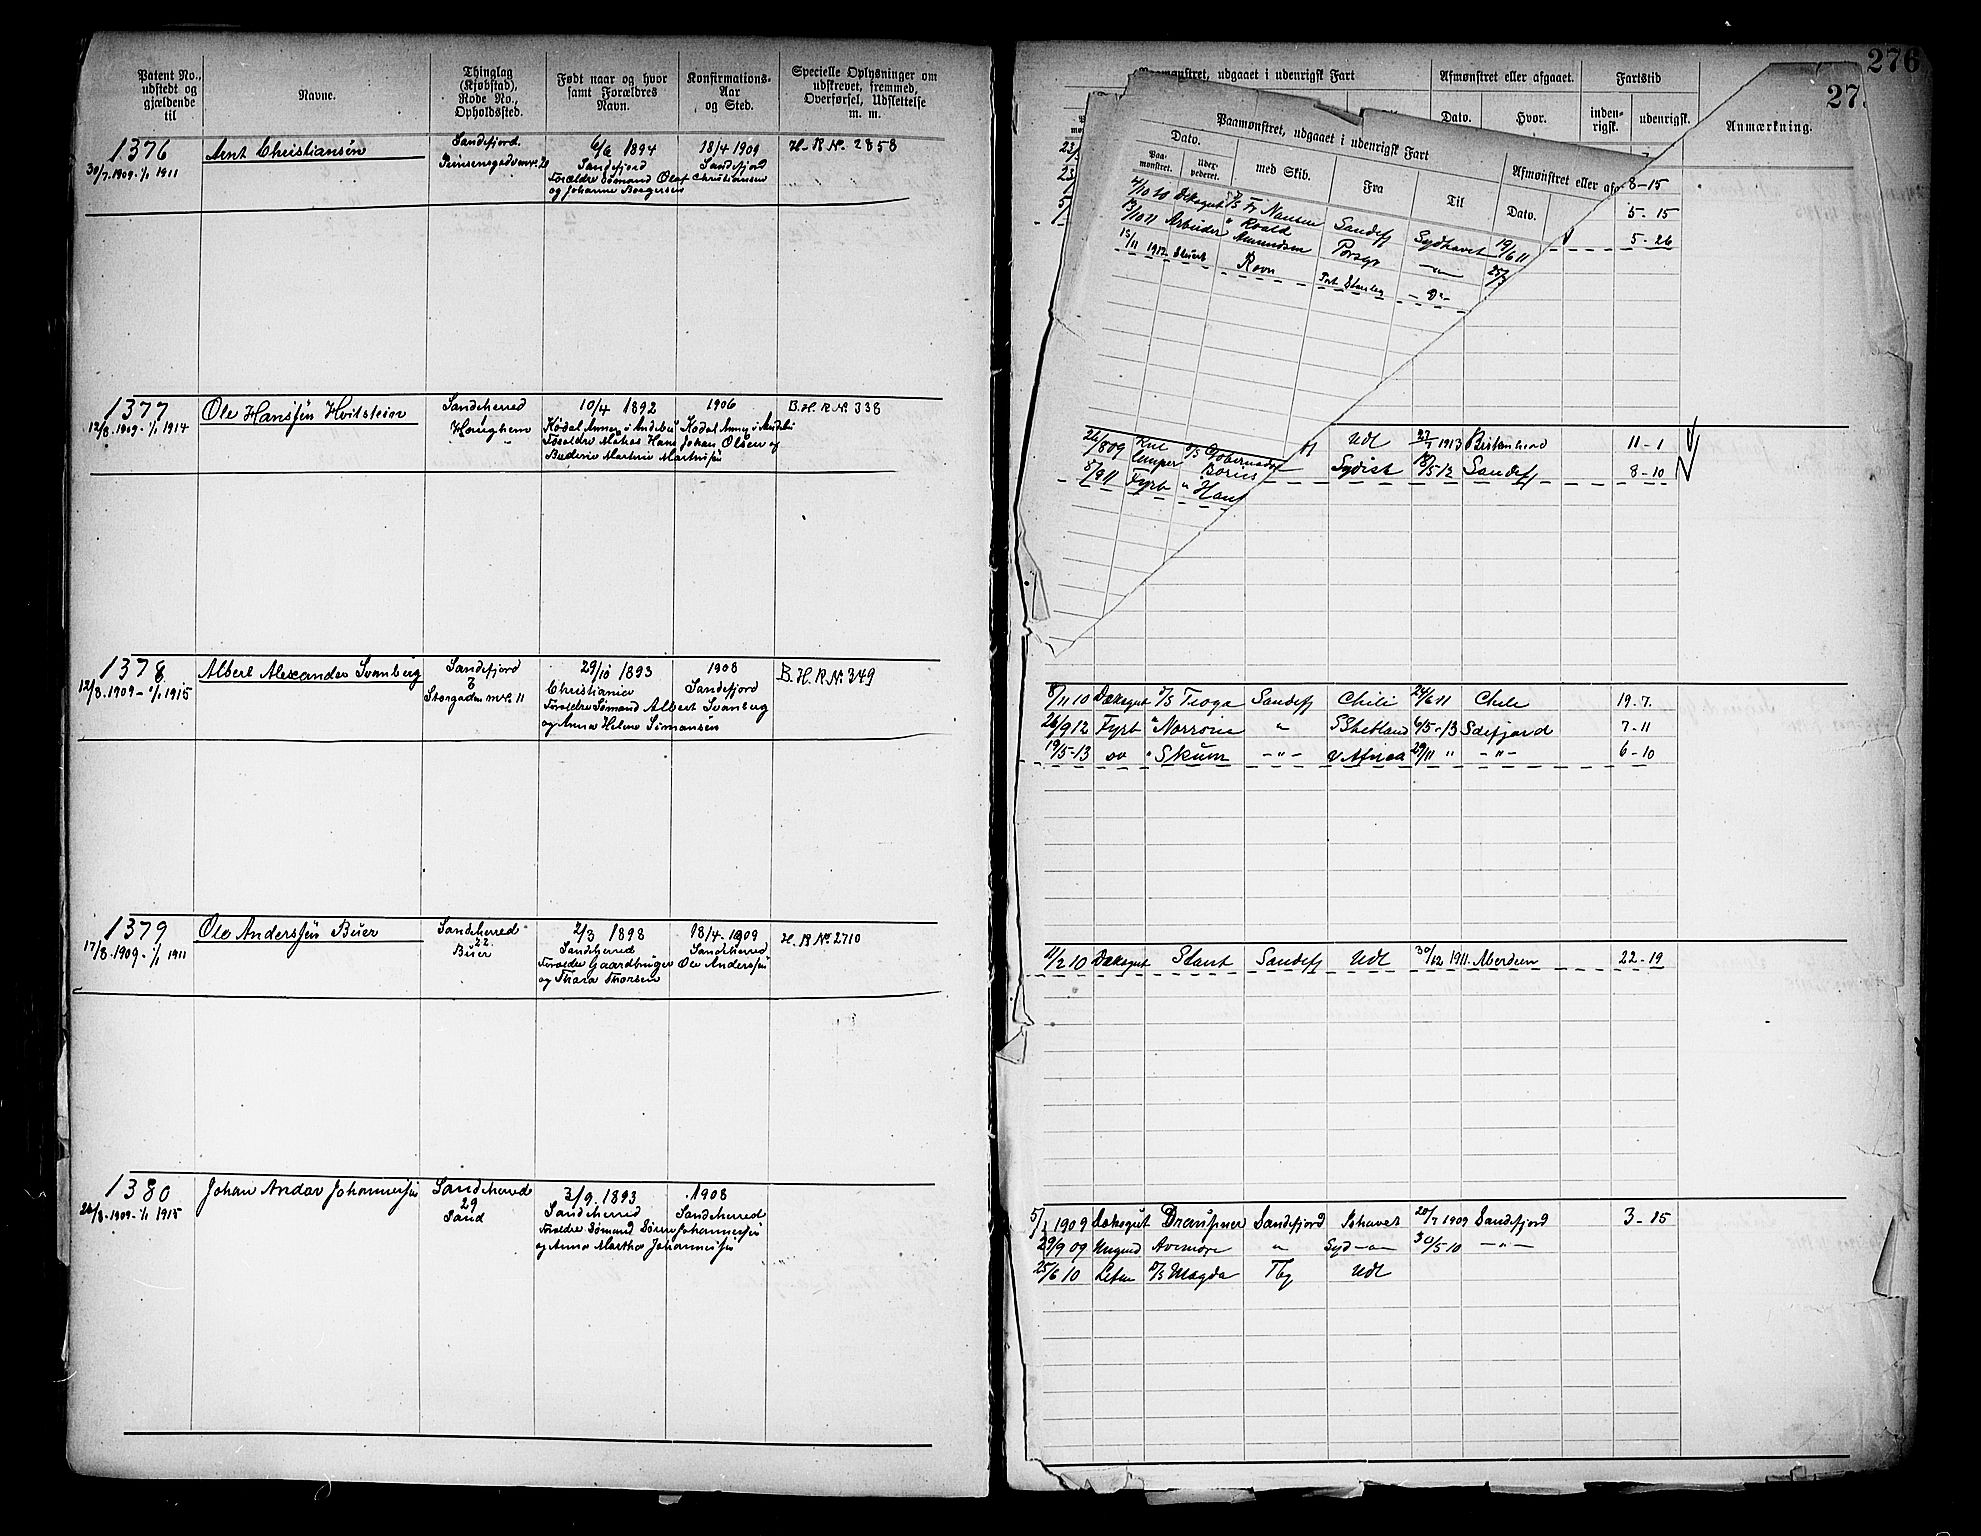 Patent No., udstedt og gjældende til
Navne.
Thinglag (Kjøbstad), Rode No., Opholdssted.
Født naar og hvor samt Forældres Navn.
Konfirmations-Aar og Sted.
Specielle Oplysninger om udskrevet, fremmed, Overførsel, Udslettelse m. m.
1376
30/7.1909-1/1 1911
Arnt Christiansen
Sandefjord.
Prinsensgade nr. 20
6/6 1894
Sandefjord
Forældre Sømand Olaf Christiansen
og Johanne Borgersen
18/4 1909
Sandefjord
H. R No. 2858
1377
12/8.1909-1/1 1914
Ole Hanssen Hvitstein
Sandeherred
Haughem
10/4 1892
Kodal Annex i Andebu
Forældre Hans Johan Olsen og
Martine
1906
Kodal Annex i Andebu
B. H. R No. 338
1378
12/8.1909-1/1 1915
Albert Alexander Svanberg
Sandefjord
Storgaden nr. 11
29/10 1893
Christiania
Forældre Sømand Albert Svanberg
og Anna Helene Simonsen
1908
Sandefjord
B. H. R No. 349
1379
17/8.1909-1/1 1911
Ole Anderssen Buer
Sandeherred
22
Buer
2/3 1898
Sandeherred
Forældre Gaardbruger Ole Anderssen
og Thara Thorsen
18/4-1909
Sandeherred
H. R No. 2710
1380
1909-1/1 1915
Johan Andor Johannessen
Sandeherred
29
Sand
3/9. 1893
Sandeherred
Forældre Sømand Søren Johannessen
og Anna Marthea Johannessen
1908
Sandeherred
276
27
Paamønstret, udgaaet i udenrigsk Fart
Afmønstret eller afgaaet.
Fartstid
Dato.
Hvor.
inden-rigsk.
udenrigsk.
Anmærkning.
Paamønstret, udgaaet i udenrigsk Fart
Afmønstret eller af
Dato.
Paa-monstret.
med Skib.
Fra
Til
Dato.
4/10 10 Dæksgut Fr Nansen Sandefj Sydhavet 19/6 11
13/10 11 Arbeider " Roald Amundsen Porsgr -"-
15/11 1912 Ravn Port Stanley - Do -
8-15
5-15
5-26
26/8 09 Kullemper Udl 1913 Birkenhead 11-1
5/9 11 Fyrb " Sydist 18/5 12 Sandefj 8-10
8/11 10 Dæksgut D/S Tioga Sandefj Chili 24/6 11 Chile 19.7.
26/9 12 Fyrb " Norrøna " S Shetland 6/5-13 Sdefjord 7-11
19/5-13 do " Skum -"- V Africa 29/11 " -"- 6-10
11/2 10 Dæksgut Stant Sandefj Udl 30/12 1911 Aberdeen 22-19
1909 Dæksgut Sandefjord Ishavet 20/7 1909 Sandefjord 3-15
29/9 09 Ungmd Avenore " Syd-"- 30/5-10 -"-
25/6 10 Letm D/S Magda Tbg Udl